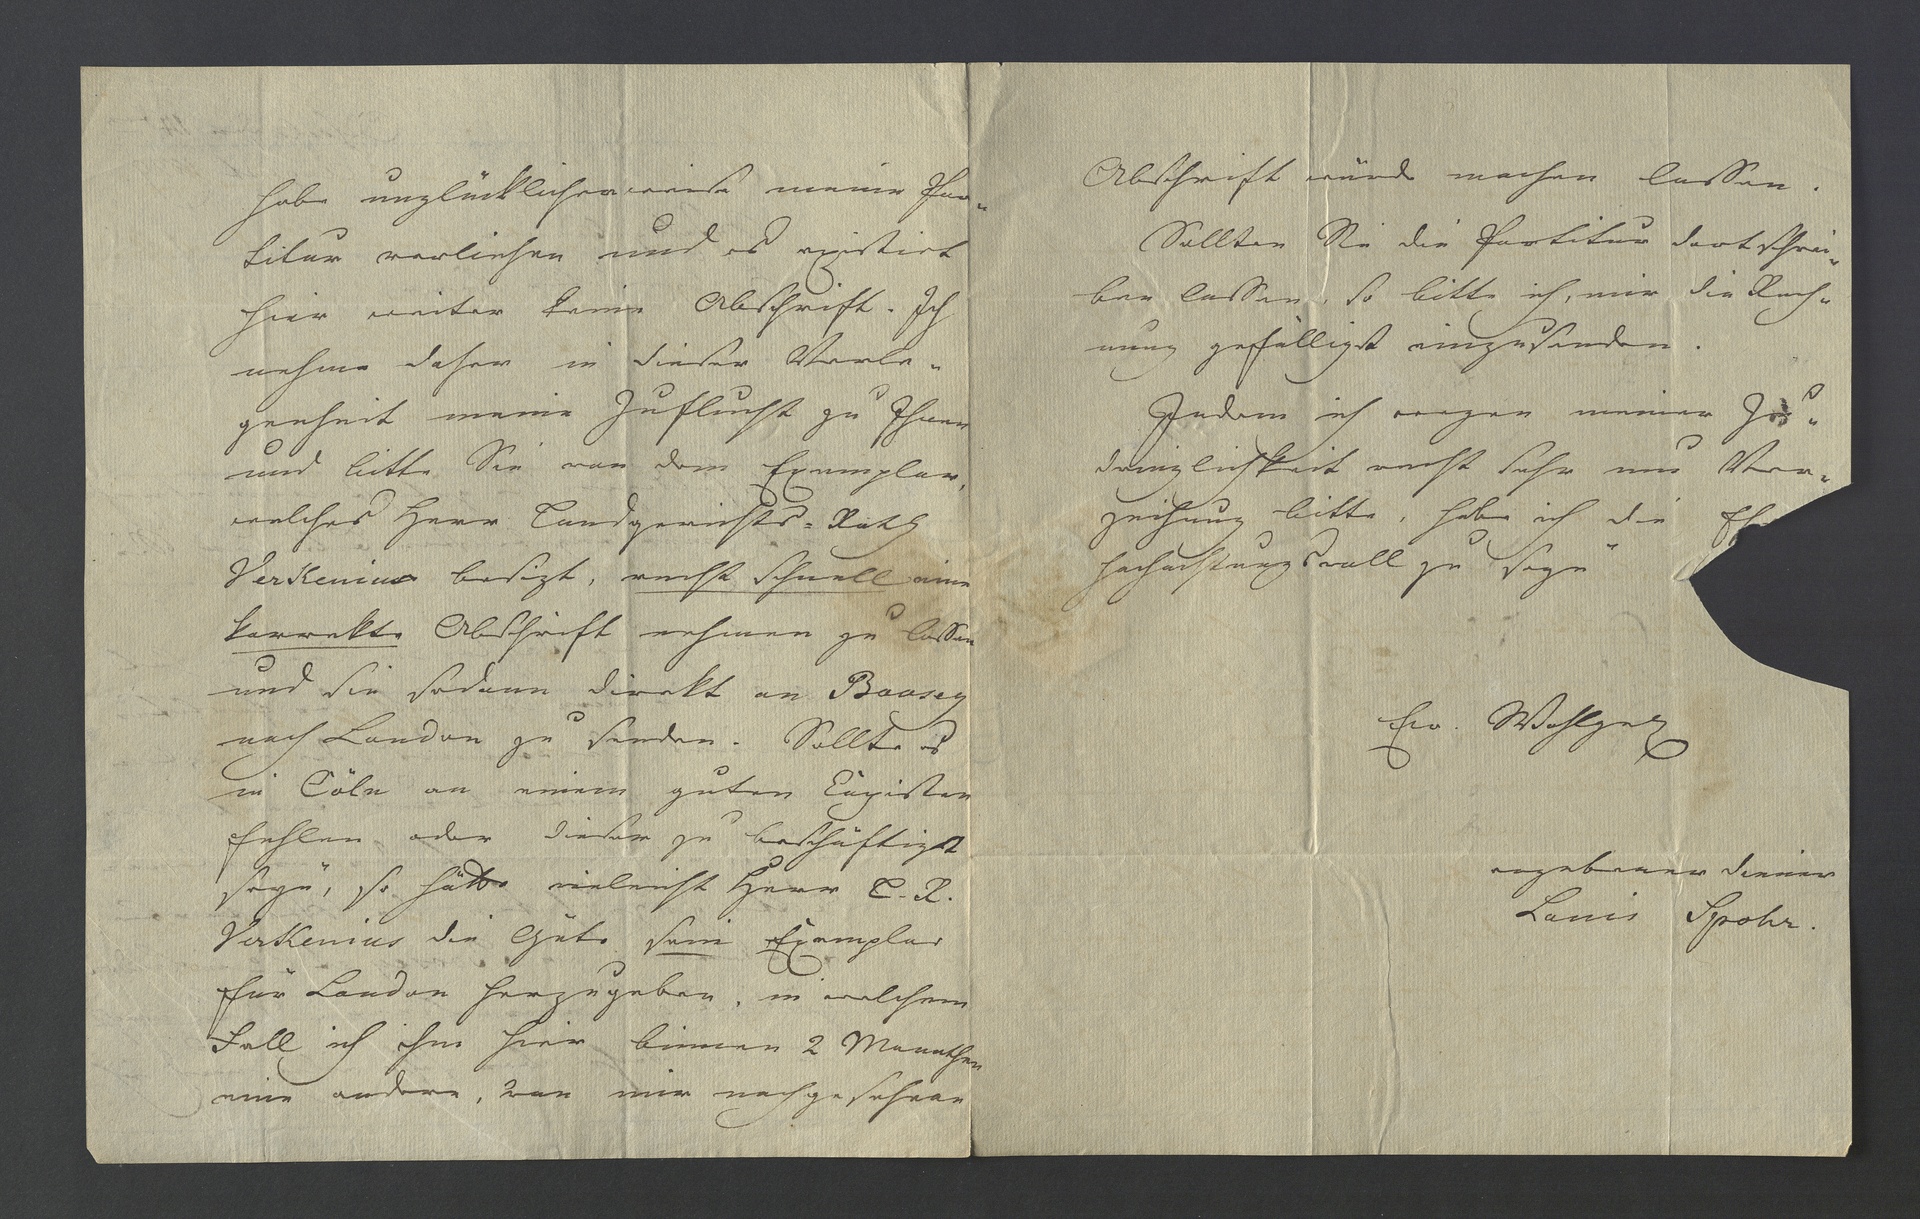 habe unglücklicherweise meine Par-
titur verliehen und es existirt
hier weiter keine Abschrift. Ich
nehme daher in dieser Verle-
genheit meine Zuflucht zu Ihnen
und bitte Sie von dem Exemplar,
welches Herr Landgerichts-Rath
Verkenius besizt, recht schnell eine
korrekte Abschrift nehmen zu lassen
und sie sodann direkt an Boosey
nach London zu senden. Sollte es
in Cöln an einem guten Copisten
fehlen oder dieser zu beschäftigt
seyn, so hätte vieleicht Herr L.R.
Verkenius die Güte sein Exemplar
für London herzugeben, in welchem
Fall ich ihm hier binnen 2 Monathen
eine andere, von mir nachgesehene
Abschrift würde machen lassen.
Sollten Sie die Partitur dort schrei-
ben lassen, so bitte ich, mir die Rech-
nung gefälligst einzusenden.
Indem ich wegen meiner Zu-
dringlichkeit recht sehr um Ver-
zeihung bitte, habe ich die Eh
hochachtungsvoll zu seyn
Ew. Wohlgeb
ergebener Diener
Louis Spohr.